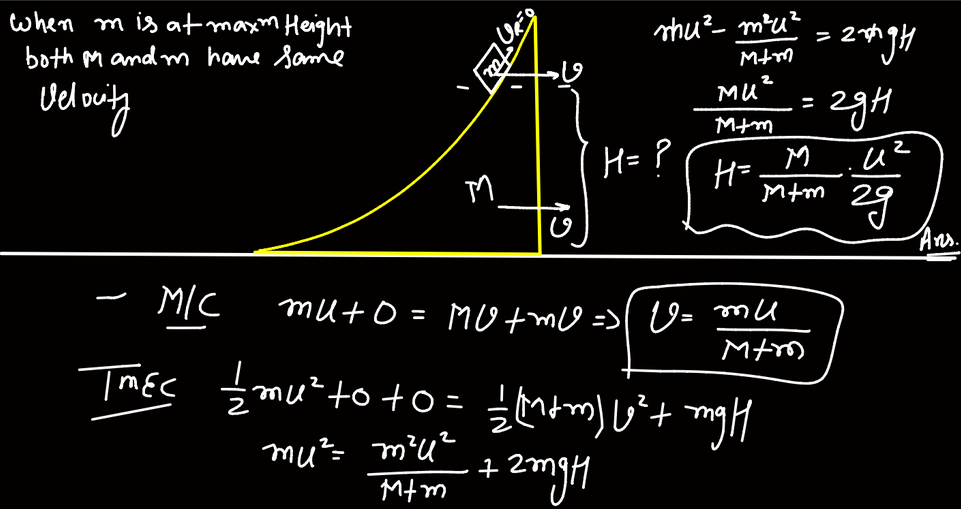 When m is at maxm Height
both M and m have same
Velocity
Vr=0
m
v
M
v
H= ?
mu² - m²u²/M+m = 2mgH
Mu²/M+m = 2gH
H= M/M+m . u²/2g
Ans.
- M/C mu+0 = Mv+mv => v= mu/M+m
TMEC ½mu²+0+0= ½(M+m)v²+mgH
mu²= m²u²/M+m + 2mgH